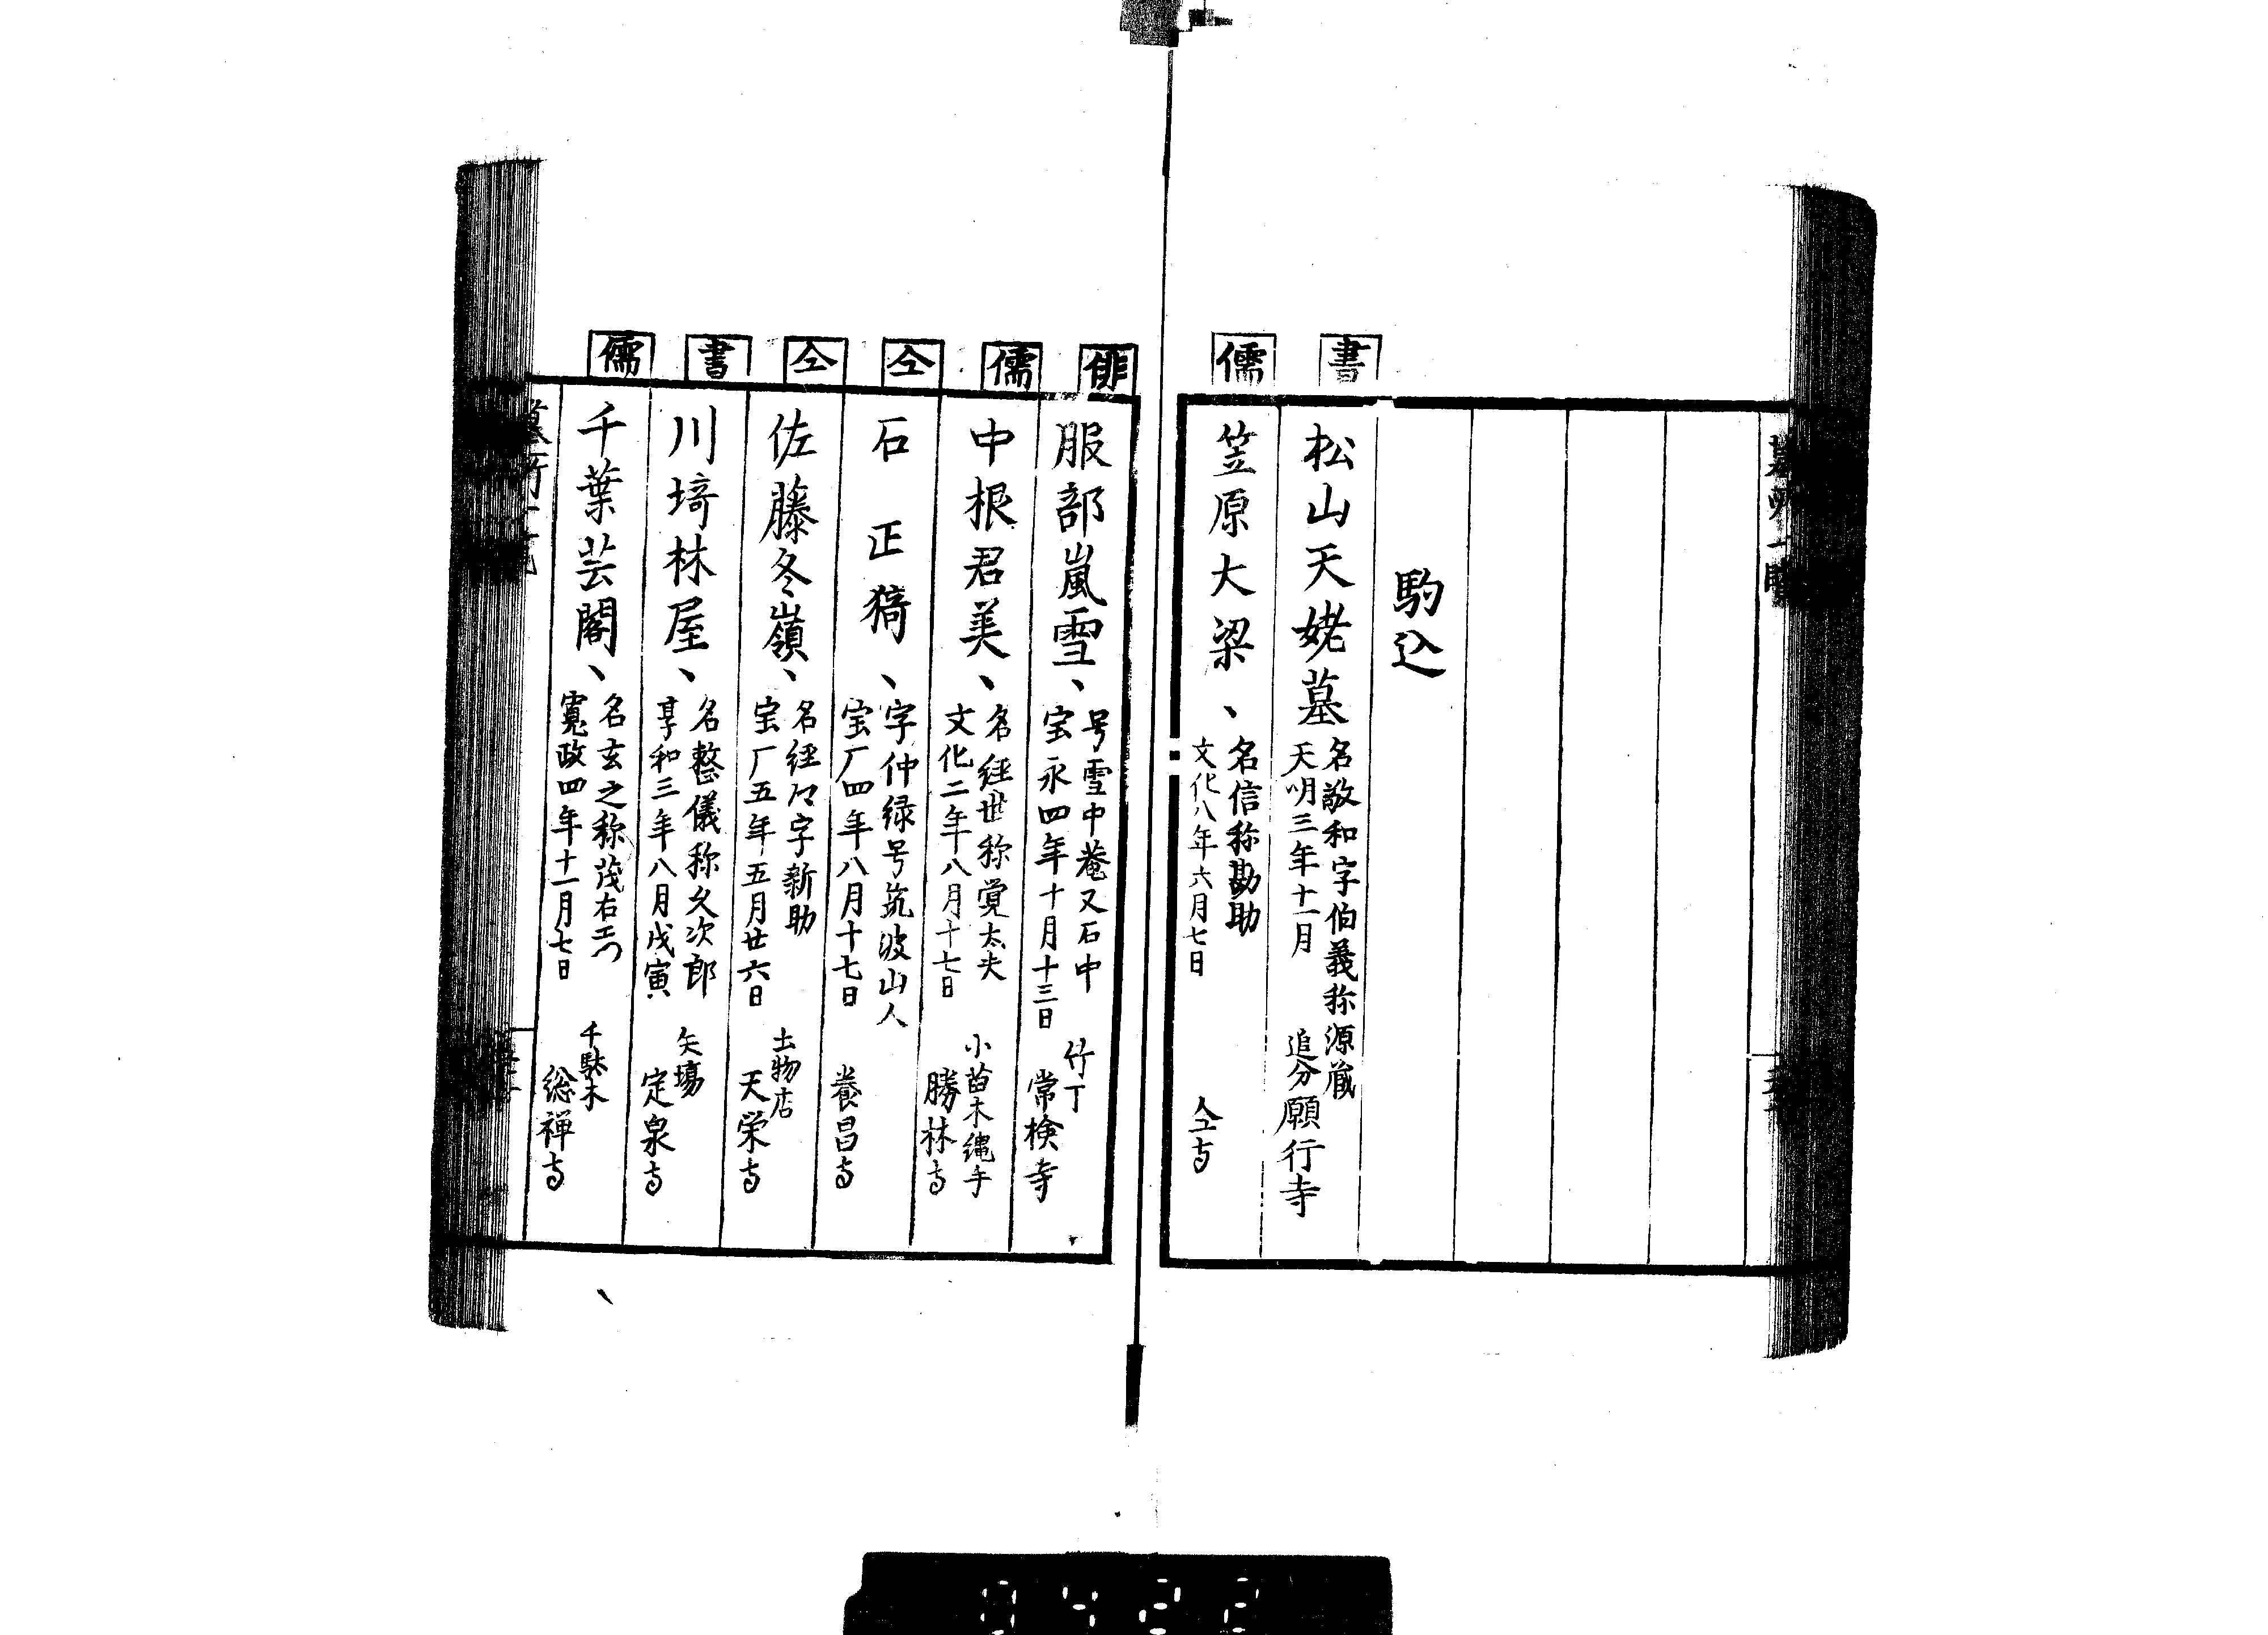 駒込
書
松山天姥墓
名敬和字伯義称源蔵
天明三年十一月
追分
願行寺
儒
笠原大梁、
名信称勘助
文化八年六月七日
仝寺
俳
服部嵐雪、
号雪中菴又石中
宝永四年十月十三日
竹丁
常検寺
儒
中根君美、
名経世称覚太夫
文化二年八月十七日
小苗木縄手
勝林寺
仝
石正猗、
字仲緑号筑波山人
宝厂四年八月十七日
養昌寺
仝
佐藤冬嶺、
名経々字新助
宝厂五年五月廿六日
土物店
天栄寺
書
川埼林屋、
名整儀称久次郎
享和三年八月戊寅
矢場
定泉寺
儒
千葉芸閣、
名玄之称茂右エ門
寛政四年十一月七日
千駄木
総禅寺